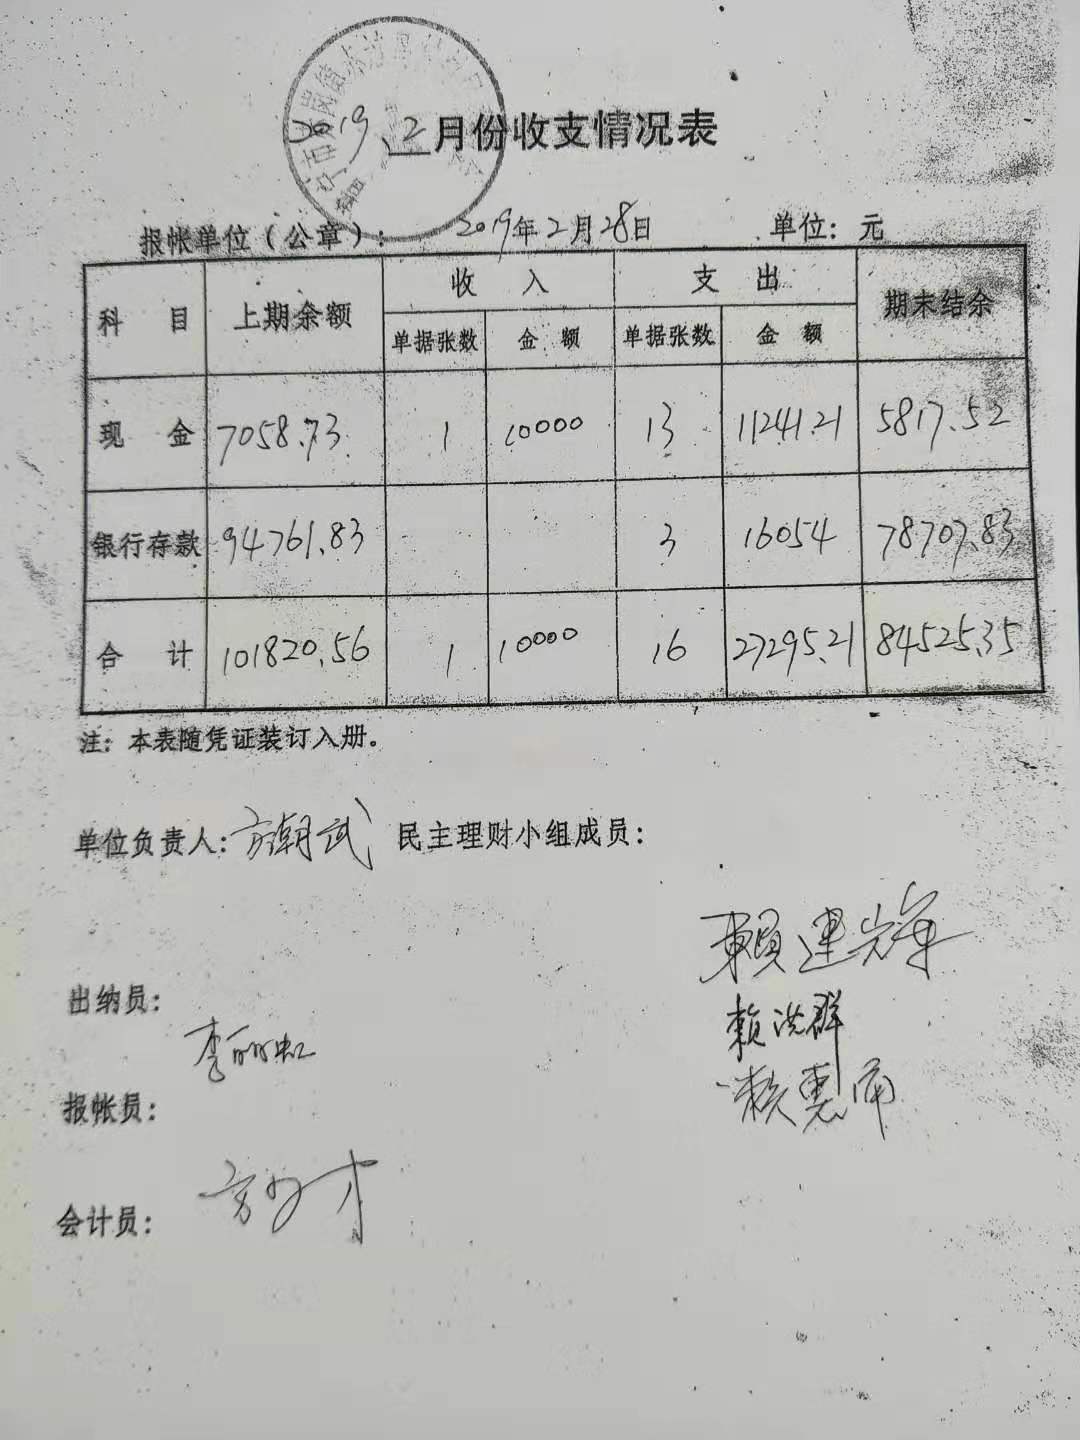 2019、2月份收支情况表
报帐单位（公章）： 2019年2月28日 单位：元
科 目 上期余额 收 入 支 出 期末结余
单据张数 金 额 单据张数 金 额
现 金 7058.73 1 10000 13 11241.21 5817.52
银行存款 94761.83 3 16054 78707.83
合 计 101820.56 1 10000 16 27295.21 84525.35
注：本表随凭证装订入册。
单位负责人：方潮武 民主理财小组成员：
賴建辉
出纳员：
赖洪群
李丽虹
赖惠
报帐员：
会计员：